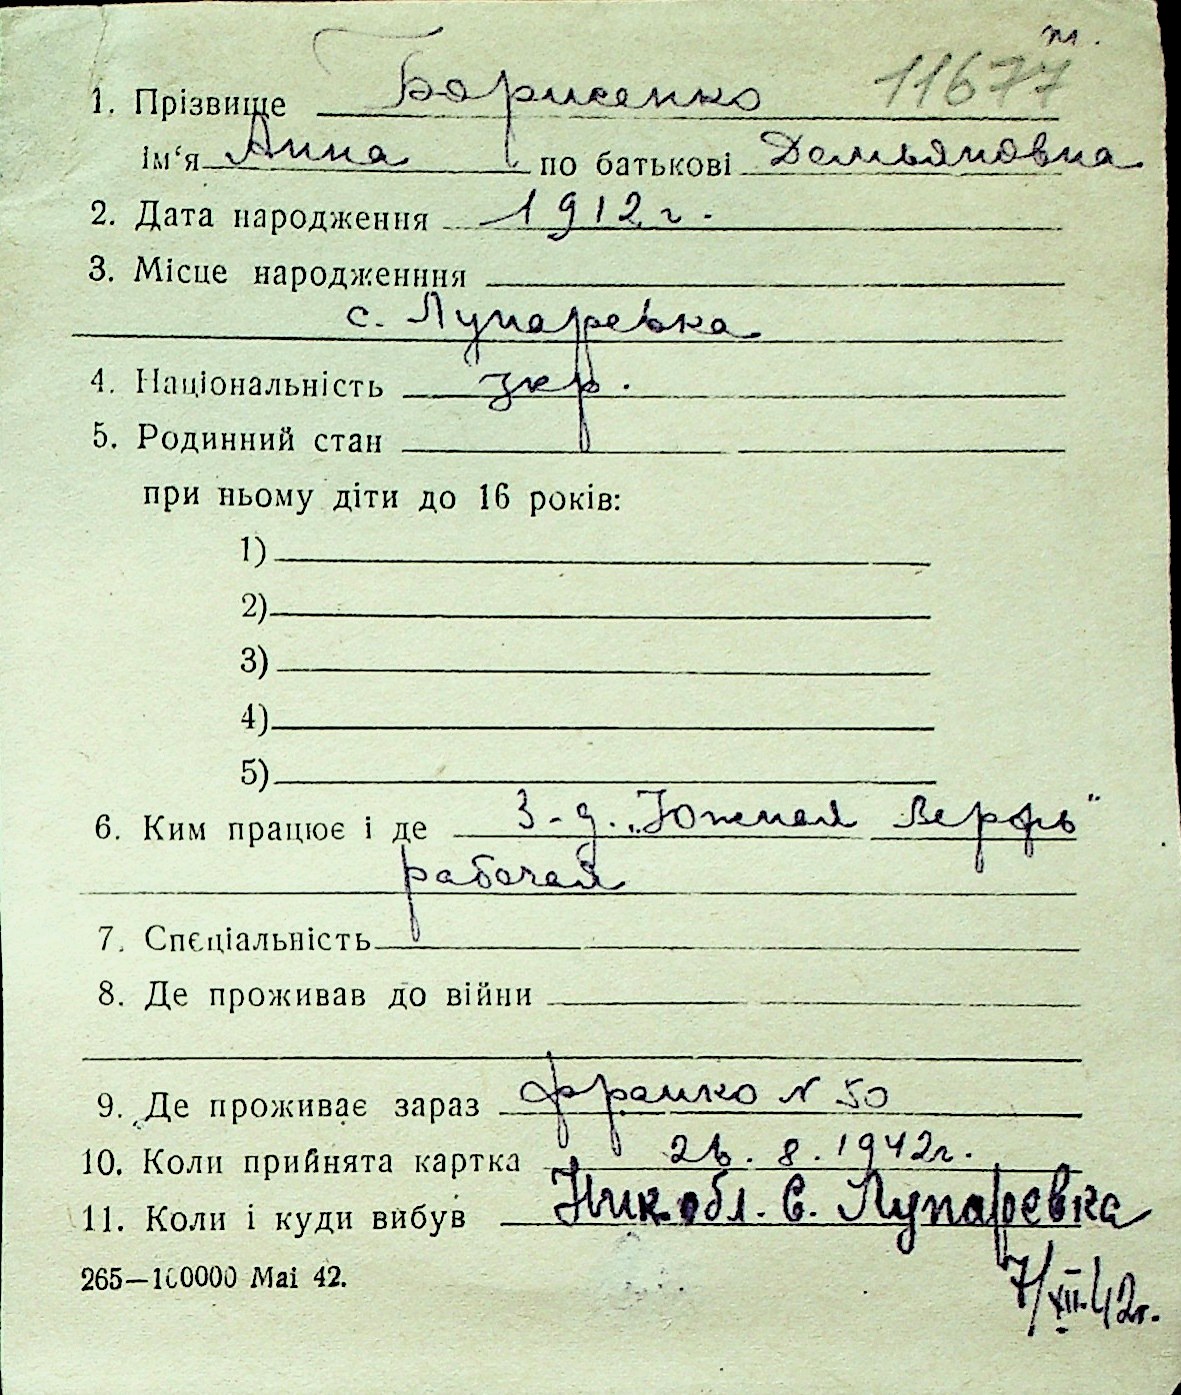 т.
11677
1. Прізвище Борисенко
ім‘я Анна по батькові Демьяновна
2. Дата народження 1912 г.
3. Місце народженння
с. Лупаревка
4. Національність укр.
5. Родинний стан
при ньому діти до 16 років:
1)
2)
3)
4)
5)
6. Ким працює і де З-д. „Южная Верфь"
рабочая
7. Спєціальність
8. Де проживав до війни
9. Де проживає зараз Франко N 50
10. Коли прийнята картка 26. 8. 1942г.
11. Коли і куди вибув Ник. обл. С. Лупаревка
7/XII.42г.
265—100000 Mai 42.